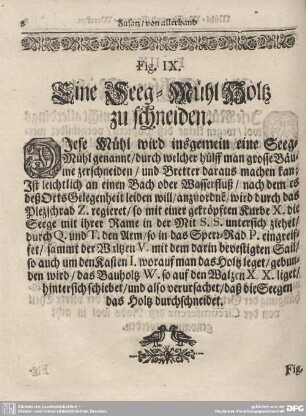 8 Zusatz/ von allerhand
Fig. IX.
Eine Seeg-Mühl Holtz
zu schneiden.
DIese Mühl wird insgemein eine Seeg-
Mühl genannt/ durch welcher hülff man grosse Bäu-
me zerschneiden/ und Bretter daraus machen kan;
Ist leichtlich an einen Bach oder Wasserfluß/ nach dem es
deß Orts Gelegenheit leiden will/ anzuordnẽ. wird durch das
regieret/ so mit einer gekröpfften Kurbe X. die
Seege mit ihrer Rame in der Mit S. S. untersich ziehet/
durch Q. und T. den Arm/ so in das Sperr-Rad P. eingreif-
fet/ sammt der Waltzen V. mit dem darin bevestigten Sail/
so auch um den Kasten I. worauf man das Holtz leget/ gebun-
den wird/ das Bauholtz W. so auf den Walzen X X. liget/
hintersich schiebet/ und also verursachet/ daß die Seegen
das Holtz durchschneidet.
Fig.